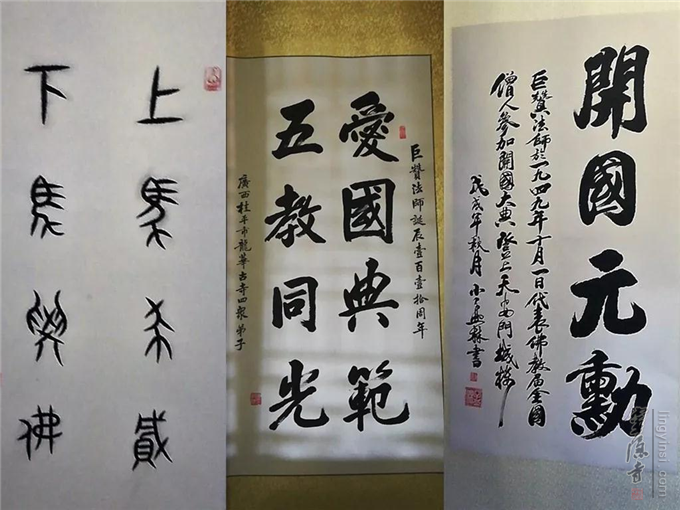 上馬殺賊
下馬學佛
巨贊法師誕辰壹百壹拾周年
愛國典範
五教同光
廣西桂平市龍華古寺四眾弟子
開國元勳
巨贊法師於一九四九年十月一日代表佛教届全國
僧人參加開國大典登上天安門城樓
戊戌年秋月
靈隱寺
lingyinsi.com